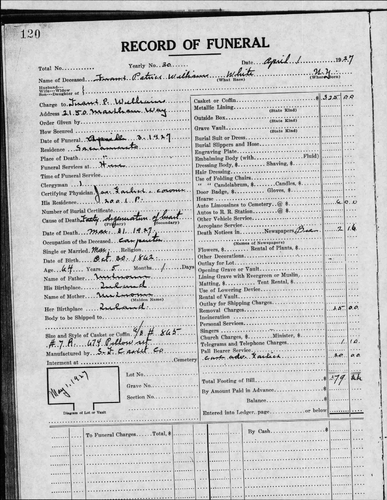 120
RECORD OF FUNERAL
Total No. Yearly No. 30 Date April 1 1927
Name of Deceased Patrick William White N.Y.
(What Race) (Where Born)
Husband of
Wife or Widow
Son or Daughter of
Charge to P. William
Address 2150 Markham Way
Order Given by
How Secured
Date of Funeral April 2 1927
Residence Sacramento
Place of Death "
Funeral Services at
Time of Funeral Service
Clergyman
Certifying Physician Jas. Garlick, coroner
His Residence
Number of Burial Certificate
Cause of Death Fatty degeneration of heart
Date of Death Mar. 31 1927
Occupation of the Deceased Carpenter
Single or Married Mar. Religion
Date of Birth Oct. 30 1862
Age 64 Years 5 Months 1 Days
Name of Father Unknown
His Birthplace Ireland
Name of Mother Unknown
(Maiden Name)
Her Birthplace Ireland
Body to be Shipped to
Size and Style of Casket or Coffin 6/3 # 865
Manufactured by S.F. Casket Co
Interment at Cemetery
Lot No.
Grave No.
Section No.
May 1, 1927
Diagram of Lot or Vault
Casket or Coffin $ 325 00
Metallic Lining
(State Kind)
Outside Box
(State Kind)
Grave Vault
(State Kind)
Burial Suit or Dress
Burial Slippers and Hose
Engraving Plate
Embalming Body (with Fluid)
Dressing Body, $ Shaving, $
Hair Dressing
Use of Folding Chairs
" " Candelabrum, $ Candles, $
Door Badge, $ Gloves, $
Hearse
Auto Limousines to Cemetery @ $ 6 00
Autos to R. R. Station @ $
Other Vehicle Service
Aeroplane Service
Death Notices in Newspapers Bee 2 16
(Names of Newspapers)
Flowers, $ Rental of Plants, $
Other Decorations
Outlay for Lot
Opening Grave or Vault
Lining Grave with Evergreen or Muslin
Matting, $ Tent Rental, $
Use of Lowering Device
Rental of Vault
Outlay for Shipping Charges
Removal Charges 25 00
Incineration
Personal Services
Singers
Church Charges, $ Minister, $
Telegrams and Telephone Charges 1 10
Pall Bearer Service
20 00
Total Footing of Bill $ 379
By Amount Paid in Advance
Balance $
Entered into Ledger, page or below
To Funeral Charges Total, $ By Cash $